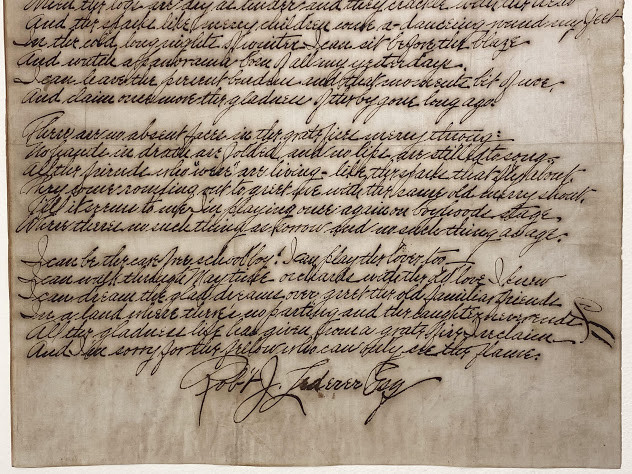 When the logs are dry as tinder and they crackle with the heat
And the sparks like merry children come a-dancing round my feet
In the cold, long nights of winter I can sit before the blaze
And watch a panorama born of all my yesterdays.
I can leave the present burdens and that moment's bit of woe,
And claim once more the gladness of the bygone long ago
There are no absent faces in the grate fires merry throng;
No hands in death are folded and no lips are stilled to song.
All the friends who were are living - like the sparks that fly about
They come romping out to greet me with the same old merry shout.
Till it seems to me I'm playing once again on boyhoods stage,
Where there's no such thing as sorrow and no such thing as age.
I can be the care free school boy! I can play the lover, too
I can walk through Maytime orchards with the old love I knew
I can dream the glad dreams over, greet the old familiar friends
In a land where there's no parting and the laughter never ends
All the gladness life has given from a grate fire I reclaim
And I'm sorry for the fellow who can only see the flame.
Rob't J. Lederer Esq